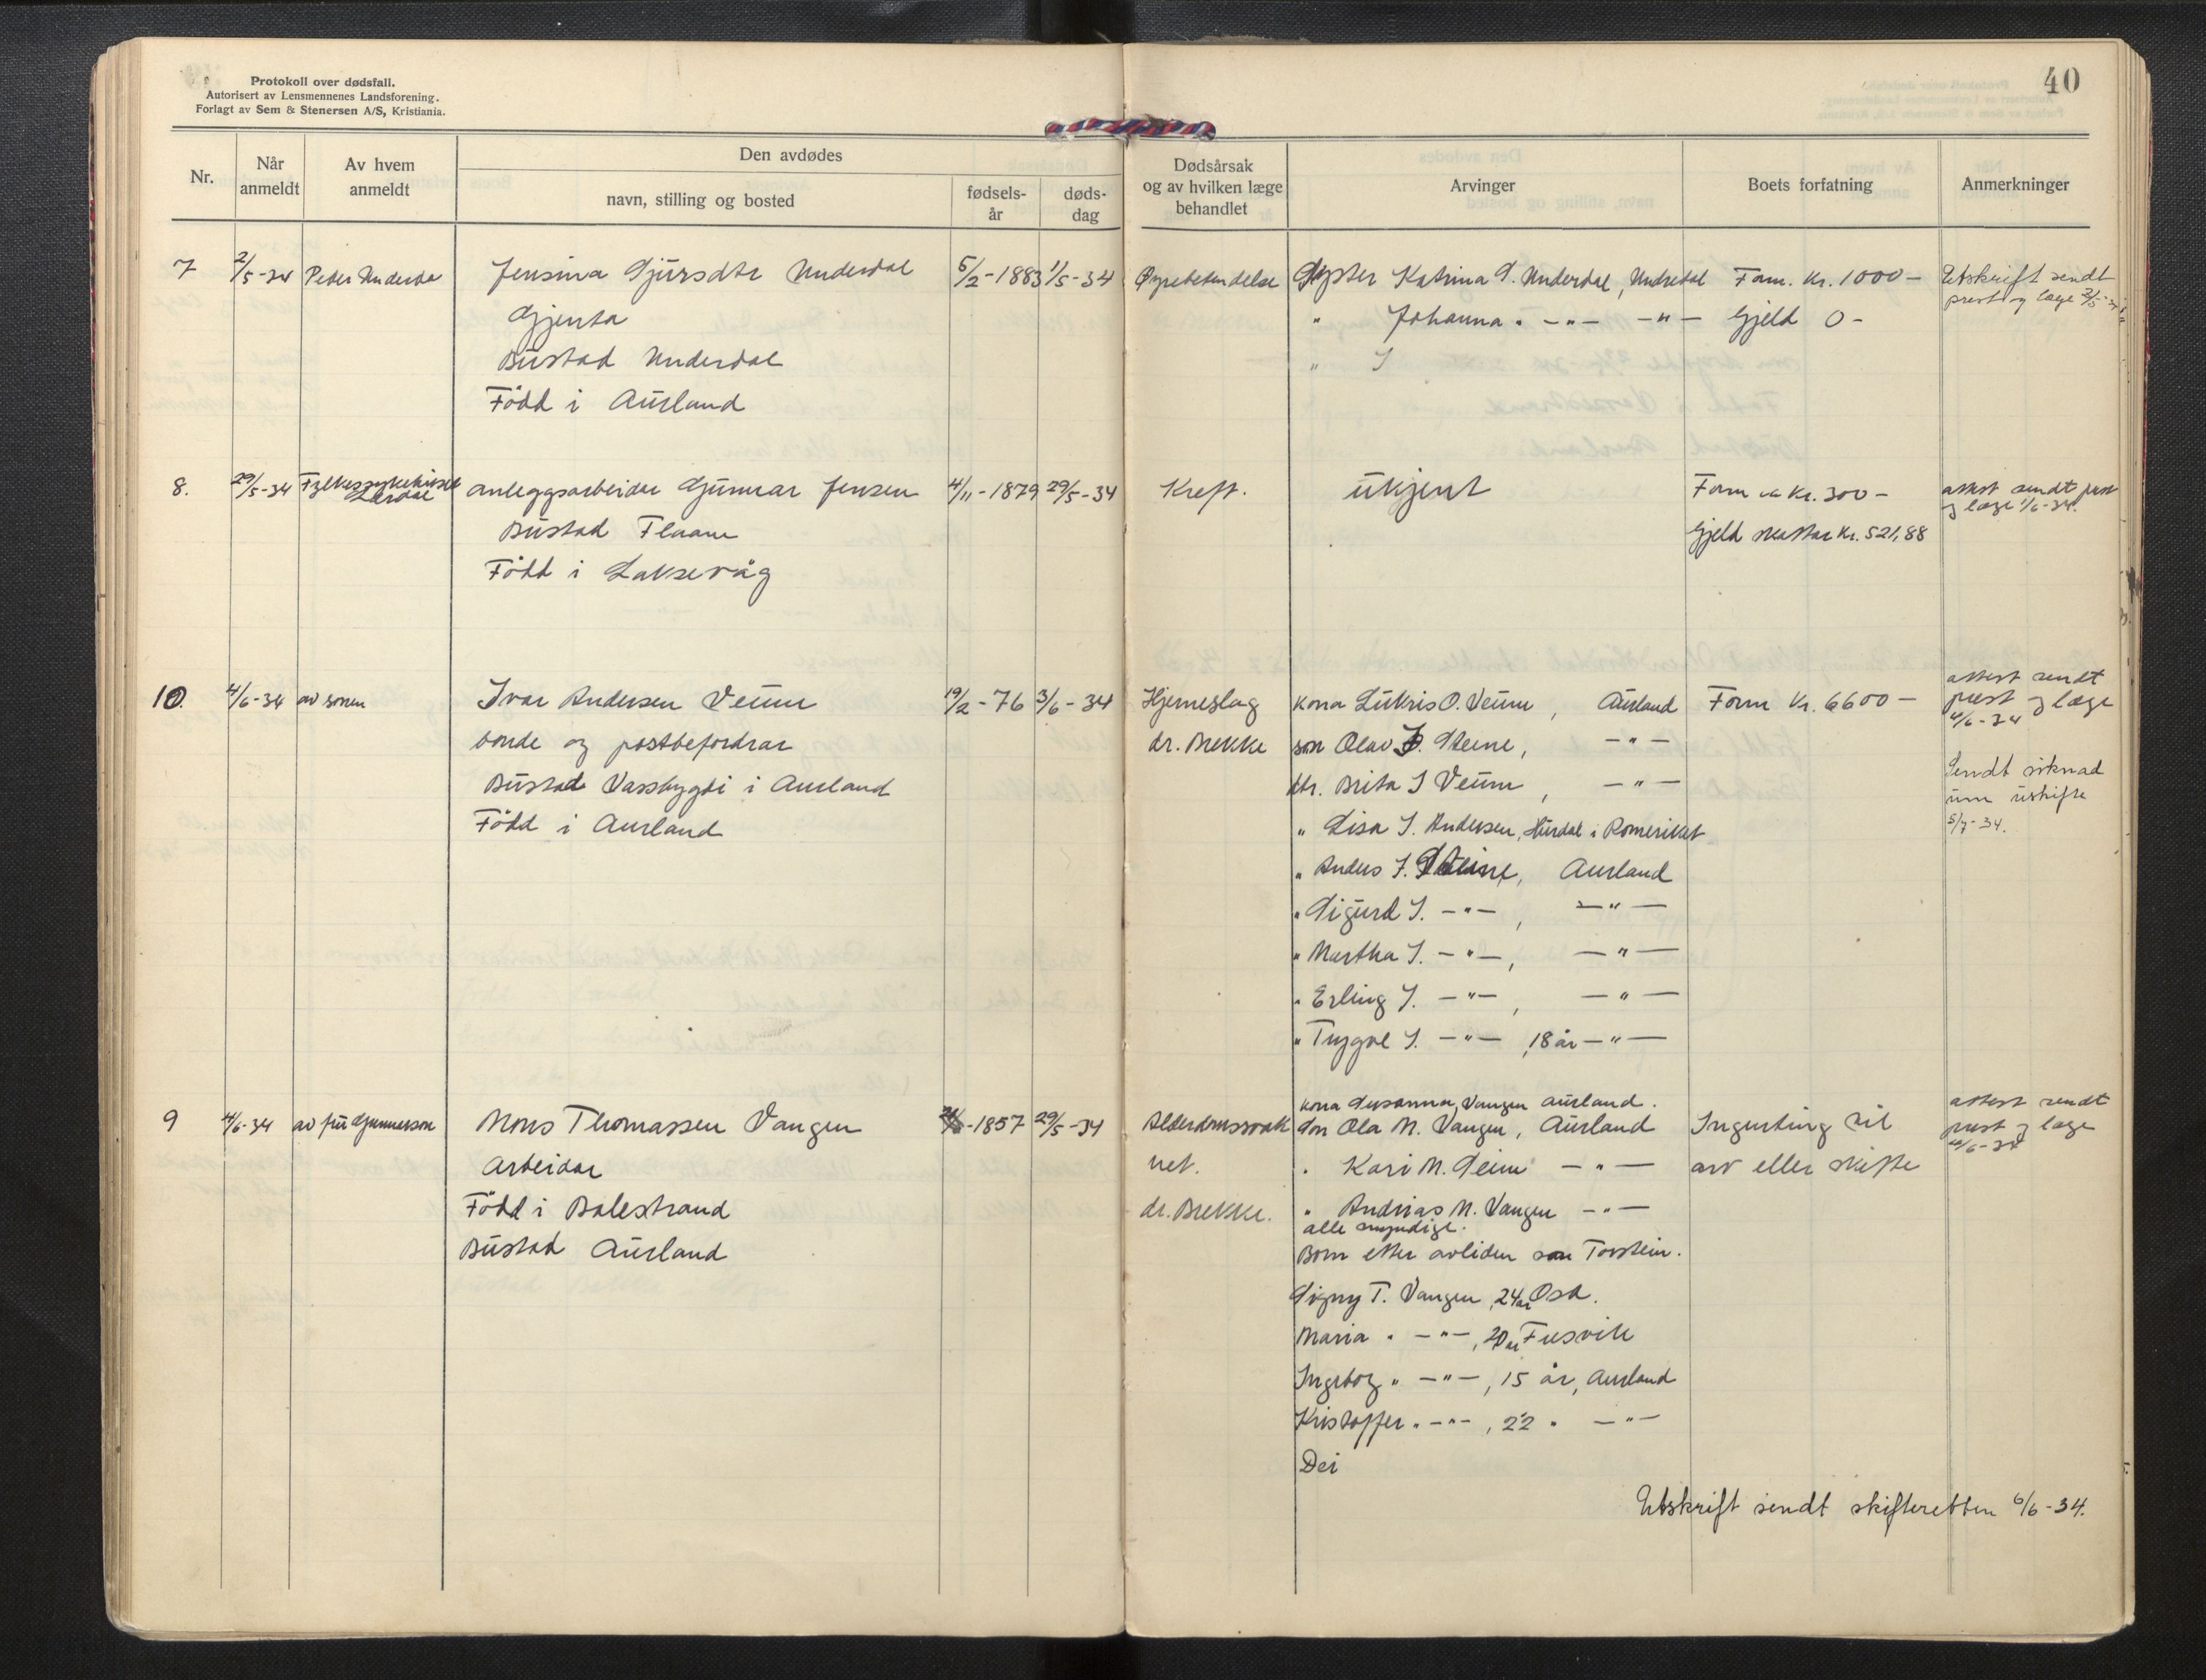 Protokoll over dødsfall.
Autorisert av Lensmennenes Landsforening.
Forlagt av Sem & Stenersen A/S, Kristiania.
40
Nr.
Når anmeldt
Av hvem anmeldt
Den avdødes
navn, stilling og bosted
fødsels-år
døds-dag
Dødsårsak og av hvilken læge behandlet
Arvinger
Boets forfatning
Anmerkninger
7 2/5-34 Peder Underdal Jensina Gjursdtr Underdal 5/2-1883 1/5-34 Øyrebetendelse Syster Katrina G. Underdal, Undredal Form. Kr. 1000- Utskrift sendt
Gjenta " Johanna " -"- -"- Gjeld 0- prest og læge 2/5-34
Bustad Underdal "
Född i Aurland
8. 29/5-34 Fylkessykehuset Lærdal anleggsarbeidar Gunnar Jensen 4/11-1879 29/5-34 Kreft. ukjent Form ca Kr. 300- attest sendt prest
Bustad Flaam og læge 1/6-34.
Gjeld skattar Kr. 521,88
Född i Laksevåg
10. 4/6-34 av sonen Ivar Andersen Veum 19/2-76 3/6-34 Hjerneslag kona Lukris O. Veum, Aurland Form Kr. 6600- attest sendt
prest og læge
4/6-34
bonde og postbefordrar dr. Brekke son Olav I. Steine, -"-
Bustad Vassbygdi i Aurland dtr. Brita I Veum, -"- Sendt søknad
um uskifte
5/7-34.
Född i Aurland " Lisa I. Andersen, Hurdal i Romeriket
" Anders I. Steine, Aurland
" Sigurd I. -"-, -"-
" Martha I. -"-, -"-
" Erling I. -"-, -"-
" Trygve I. -"-, 18 år -"-
9 4/6-34 av fru Gunnerson Mons Thomassen Vangen -1857 29/5-34 Alderdomssvak kona Susanna Vangen Aurland.
son Ola M. Vangen, Aurland Ingenting til attest sendt
prest og læge
4/6-34
Arbeidar het. " Kari M. Steine -"- arv eller skifte
Född i Balestrand dr. Brekke. " Andrias M. Vangen -"-
alle myndige.
Bustad Aurland Born etter avliden son Torstein.
Signy T. Vangen, 24 år
Maria " -"-, 20 år
Ingeborg " -"-, 15 år, Aurland
Kristoffer " -"-, 22 " -"-
Dei
Utskrift sendt skifteretten 6/6-34.